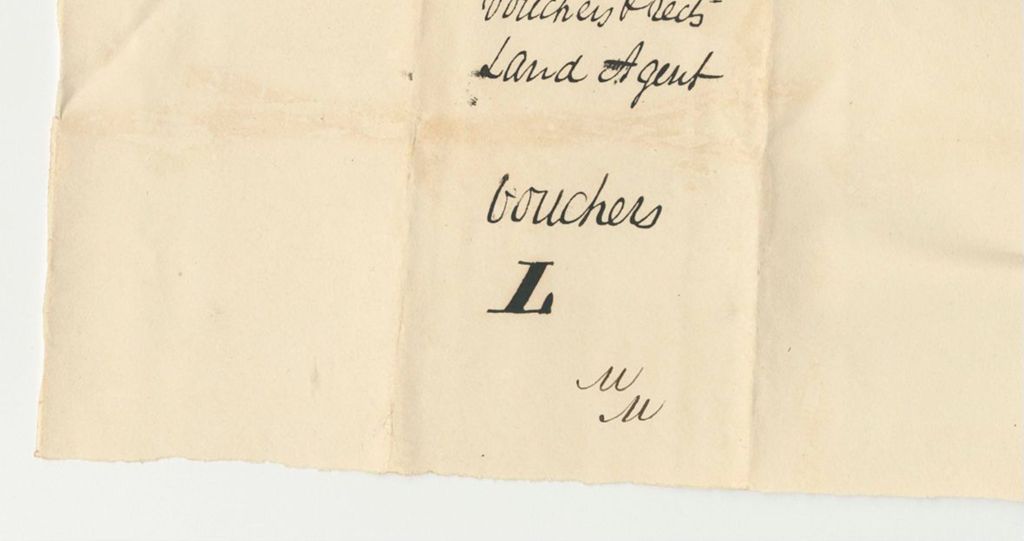 Vouchers & rects
Land Agent
Vouchers
L
M
M